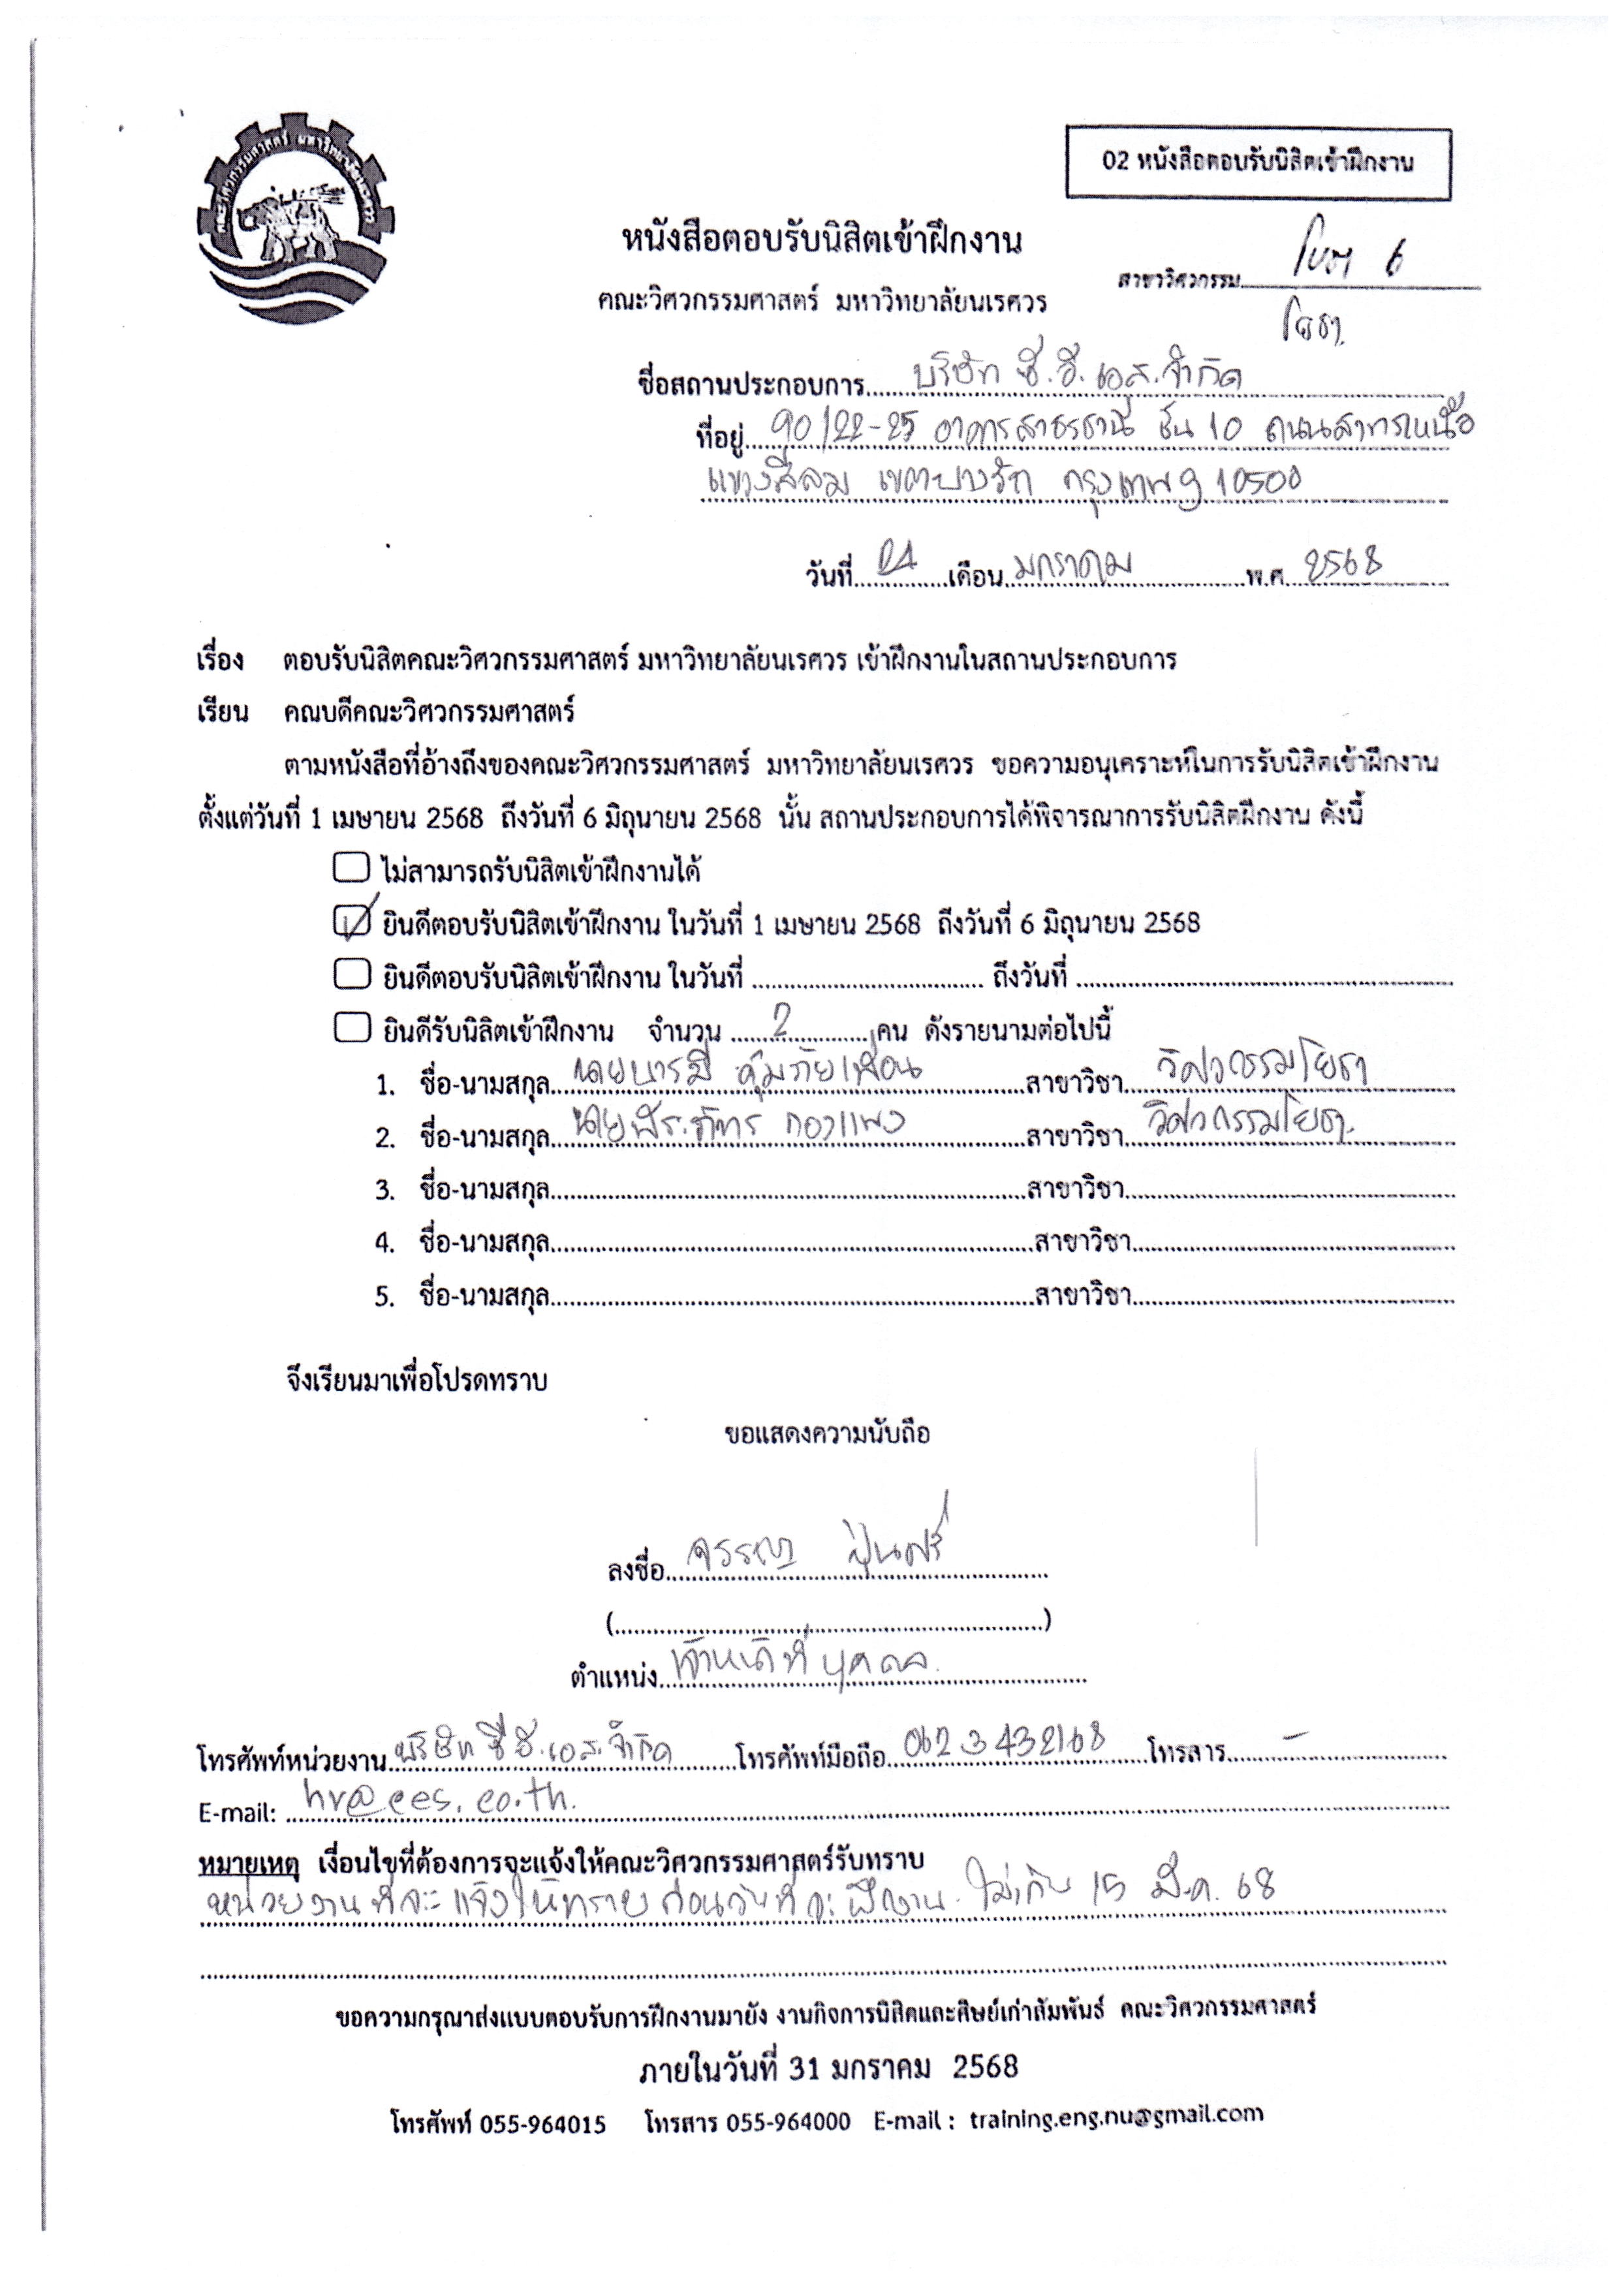 คณะวิศวกรรมศาสตร์ มหาวิทยาลัยนเรศวร
02 หนังสือตอบรับนิสิตเข้าฝึกงาน
หนังสือตอบรับนิสิตเข้าฝึกงาน
สาขาวิศวกรรม โยธา 6
โยธา
คณะวิศวกรรมศาสตร์ มหาวิทยาลัยนเรศวร
ชื่อสถานประกอบการ บริษัท ซี.อี.เอส.จำกัด
ที่อยู่ 90/22-25 อาคารสาธรธานี ชั้น 10 ถนนสาทรเหนือ
แขวงสีลม เขตบางรัก กรุงเทพฯ 10500
วันที่ 24 เดือน มกราคม พ.ศ. 2568
เรื่อง ตอบรับนิสิตคณะวิศวกรรมศาสตร์ มหาวิทยาลัยนเรศวร เข้าฝึกงานในสถานประกอบการ
เรียน คณบดีคณะวิศวกรรมศาสตร์
ตามหนังสือที่อ้างถึงของคณะวิศวกรรมศาสตร์ มหาวิทยาลัยนเรศวร ขอความอนุเคราะห์ในการรับนิสิตเข้าฝึกงาน
ตั้งแต่วันที่ 1 เมษายน 2568 ถึงวันที่ 6 มิถุนายน 2568 นั้น สถานประกอบการได้พิจารณาการรับนิสิตฝึกงาน ดังนี้
ไม่สามารถรับนิสิตเข้าฝึกงานได้
ยินดีตอบรับนิสิตเข้าฝึกงาน ในวันที่ 1 เมษายน 2568 ถึงวันที่ 6 มิถุนายน 2568
ยินดีตอบรับนิสิตเข้าฝึกงาน ในวันที่ ถึงวันที่
ยินดีรับนิสิตเข้าฝึกงาน จำนวน 2 คน ดังรายนามต่อไปนี้
1. ชื่อ-นามสกุล นายบารมี คุ้มภัยเพื่อน สาขาวิชา วิศวกรรมโยธา
2. ชื่อ-นามสกุล นายพีระภัทร กองแพง สาขาวิชา วิศวกรรมโยธา
3. ชื่อ-นามสกุล สาขาวิชา
4. ชื่อ-นามสกุล สาขาวิชา
5. ชื่อ-นามสกุล สาขาวิชา
จึงเรียนมาเพื่อโปรดทราบ
ขอแสดงความนับถือ
ลงชื่อ
( )
ตำแหน่ง เจ้าหน้าที่บุคคล
โทรศัพท์หน่วยงาน บริษัท ซี.อี.เอส.จำกัด โทรศัพท์มือถือ 062 3432168 โทรสาร -
E-mail: hr@ces.co.th.
หมายเหตุ เงื่อนไขที่ต้องการจะแจ้งให้คณะวิศวกรรมศาสตร์รับทราบ
หน่วยงานที่จะแจ้งให้ทราบก่อนวันที่จะฝึกงาน ไม่เกิน 15 มี.ค. 68
ขอความกรุณาส่งแบบตอบรับการฝึกงานมายัง งานกิจการนิสิตและศิษย์เก่าสัมพันธ์ คณะวิศวกรรมศาสตร์
ภายในวันที่ 31 มกราคม 2568
โทรศัพท์ 055-964015 โทรสาร 055-964000 E-mail : training.eng.nu@gmail.com